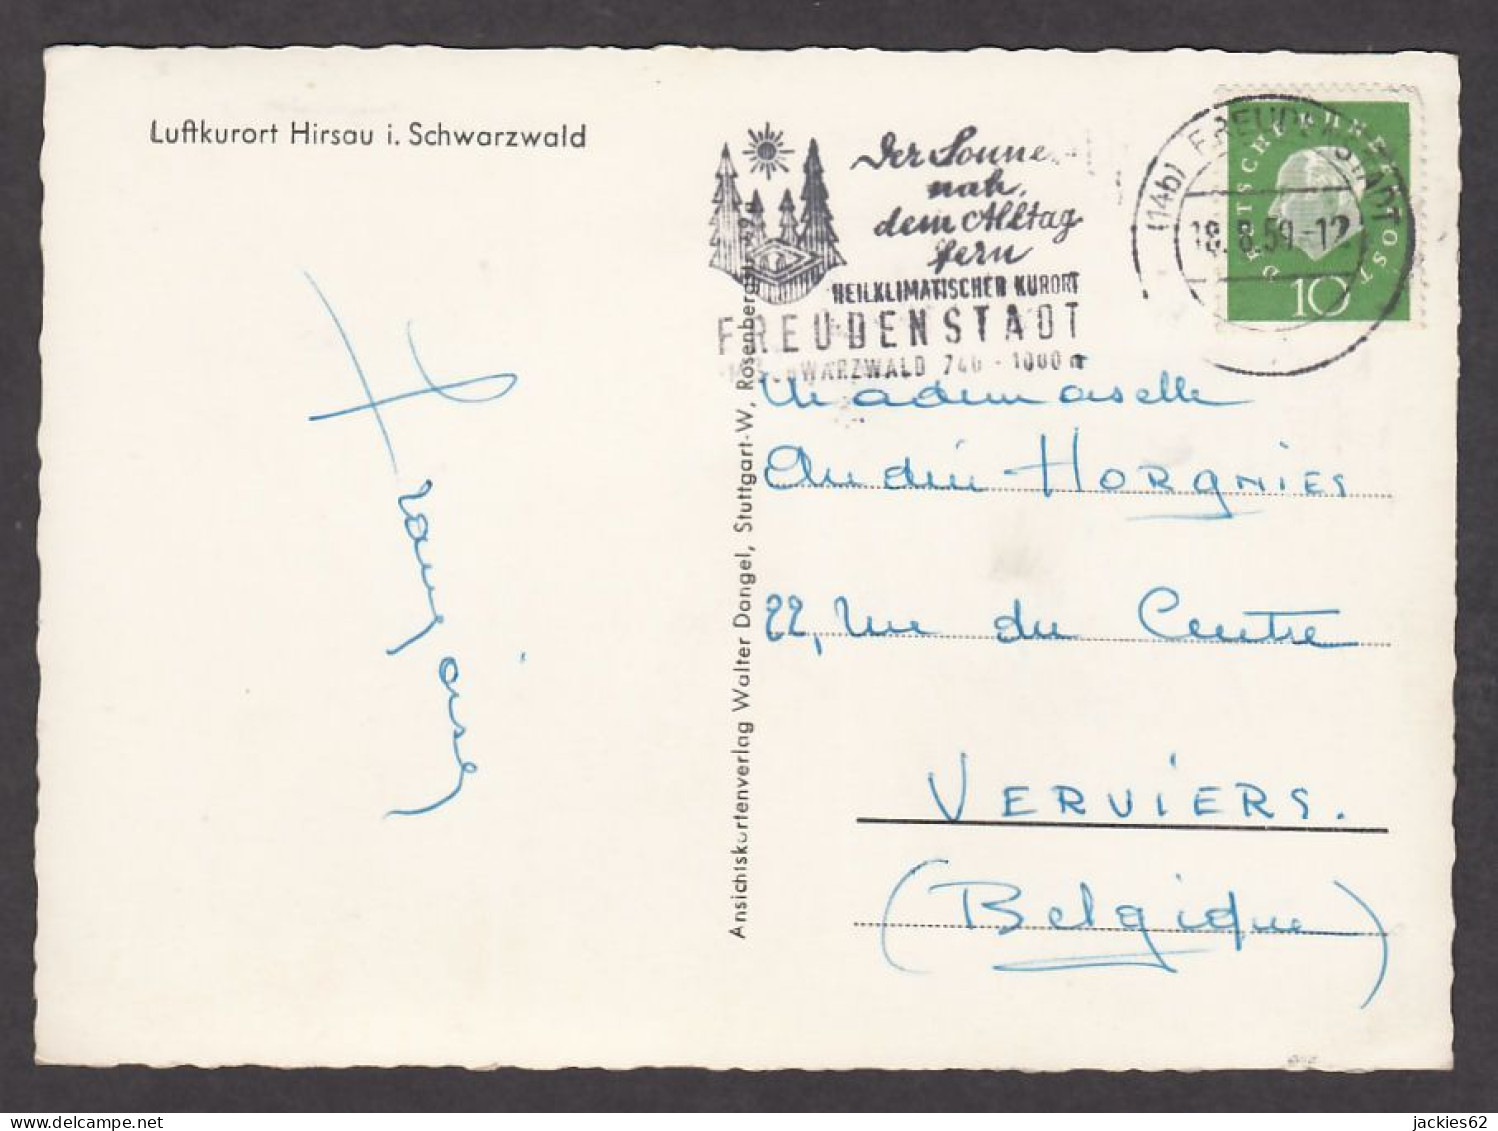 Luftkurort Hirsau i. Schwarzwald
Françoise
Ansichtskartenverlag Walter Dangel, Stuttgart-W, Rosenbergstr.
Der Sonne
nah,
dem Alltag
fern
HEILKLIMATISCHER KURORT
FREUDENSTADT
SCHWARZWALD 740 - 1000 m
(14b) FREUDENSTADT
18.8.59-12
DEUTSCHE BUNDESPOST
10
Mademoiselle
Andrée HORGNIES
22, rue du Centre
VERVIERS.
(Belgique)
jackies62